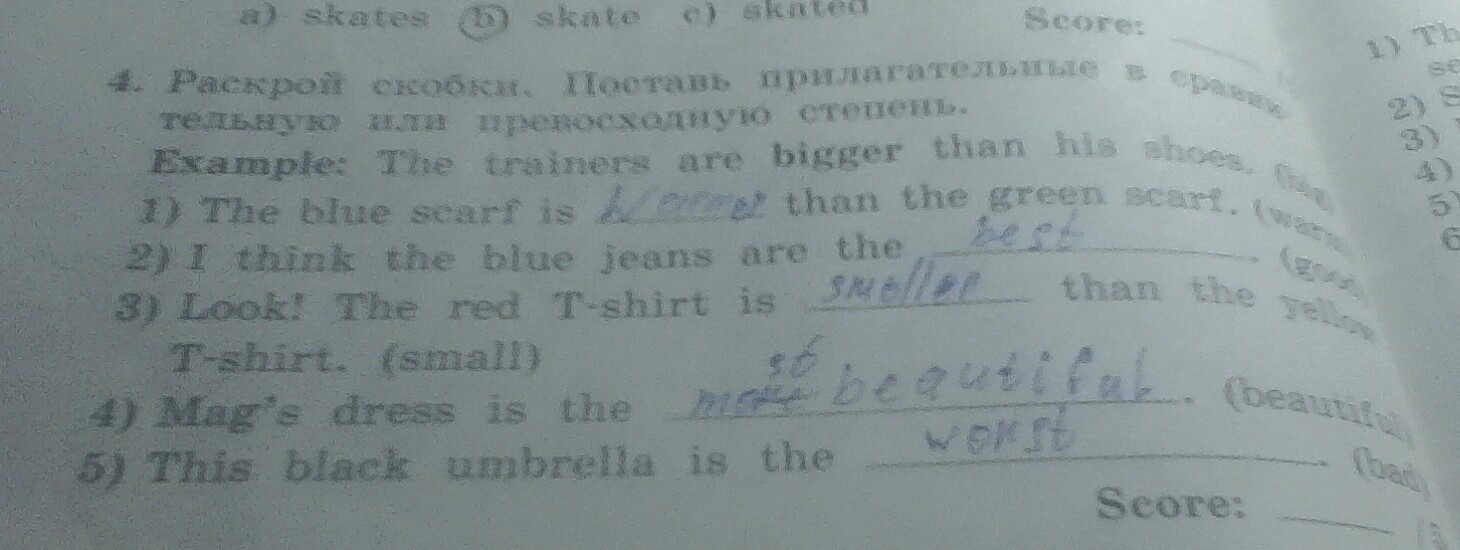 a) skates b) skate c) skated
Score:
4. Раскрой скобки. Поставь прилагательные в сравни
тельную или превосходную степень.
Example: The trainers are bigger than his shoes. (big
1) The blue scarf is warmer than the green scarf. (warm
2) I think the blue jeans are the best . (good
3) Look! The red T-shirt is smaller than the yellow
T-shirt. (small)
4) Mag's dress is the most beautiful . (beautiful)
5) This black umbrella is the worst . (bad)
Score:
1) Th
se
2) S
3)
4)
5)
6